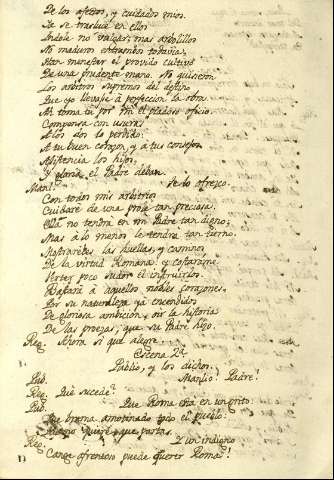 De los afectos, y cuidados mios.
Se se trasluce en ellos
Indole no vulgar; mas arbolillos
No maduros entrambos todavia,
Han menester el provido cultivo
De una prudente mano. No quisieron
Los arbitros supremos del destino
Que yo llevase à perfeccion la obra.
Ah toma tu por mi el piadoso oficio.
Compensa con usura
A los dos lo perdido:
A tu buen corazon, y à tus consejos
Asistencia los hijos,
Y gloria el Padre deban.
Manl. Te lo ofrezco.
Con todos mis arbitrios
Cuidaré de una prole tan preciosa.
Ella no tendrá en mi Padre tan digno;
Mas à lo menos le tendrá tan tierno.
Mostrareles las huellas, y caminos
De la virtud Romana: y costaráme
Harto poco sudor el instruirlos.
Bastará à aquellos nobles corazones,
Por su naturaleza yá encendidos
De gloriosa ambicion, oir la historia
De las proezas, que su Padre hizo.
Reg. Ahora si que alegre
Escena 2ª
Publio, y los dichos.
Pub. Manlio! Padre!
Reg. Què sucede?
Pub. Que Roma està en un grito:
Que brama amotinado todo el pueblo:
quiere, que partas.
Reg. Y un indigno
Cange afrentoso puede querer Roma?